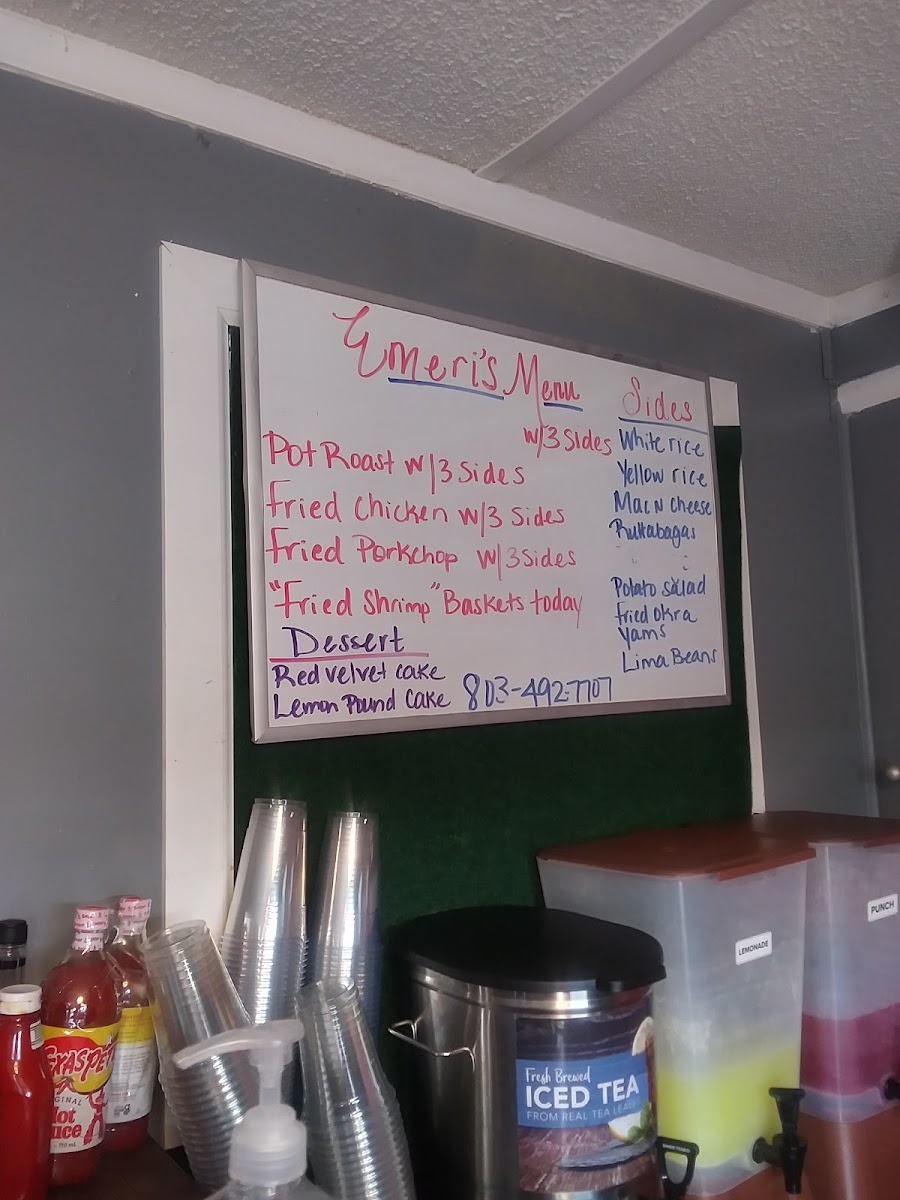 Emeri's Menu
w/3 Sides
Pot Roast w/3 Sides
Fried Chicken w/3 Sides
Fried Porkchop w/3 Sides
"Fried Shrimp" Baskets today
Dessert
Red velvet cake
Lemon Pound Cake
803-492-7707
Sides
White rice
Yellow rice
Mac N Cheese
Ruttabagas
Potato salad
Fried Okra
Yams
Lima Beans
PUNCH
LEMONADE
Fresh Brewed
ICED TEA
FROM REAL TEA LEAVES